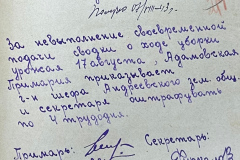 За невыполнение своевременной
подачи сводки о ходе уборки
урожая 17 августа, Адамовская
Примария приказывает
г-н шефа Андреевского зем. общ.
и секретаря оштрафувать
по 4 трудодня.
Примарь: Секретарь: